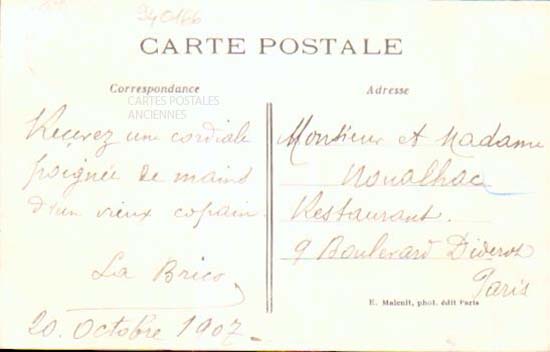 940166
CARTE POSTALE
Correspondance
CARTES POSTALES
ANCIENNES
Recevez une cordiale
poignée de mains
d'un vieux copain.
La Brico
20. Octobre 1907
Adresse
Monsieur et Madame
Noualhac
Restaurant.
9 Boulevard Diderot
Paris
E. Malcuit, phot. édit Paris